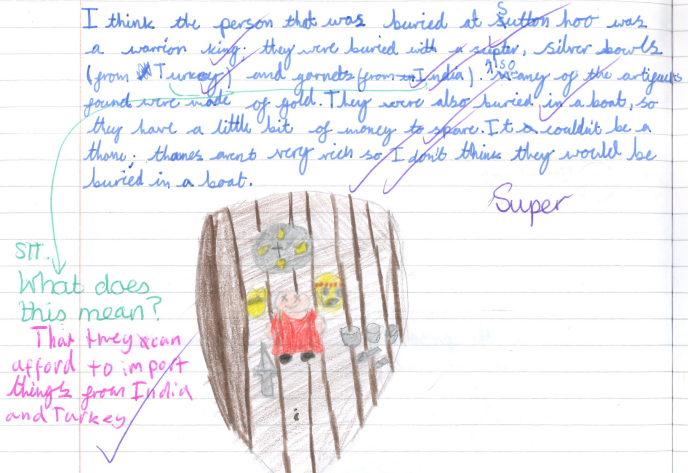 I think the person that was buried at Sutton hoo was
a warrion king. they were buried with a scepter, silver bowls
(from Turkey) and garnets (from India). also many of the artifacts
found were made of gold. They were also buried in a boat, so
they have a little bit of money to spare. It couldn't be a
thane, thanes arent very rich so I don't think they would be
buried in a boat.
Super
SIT.
What does
this mean?
That they can
afford to import
things from India
and Turkey